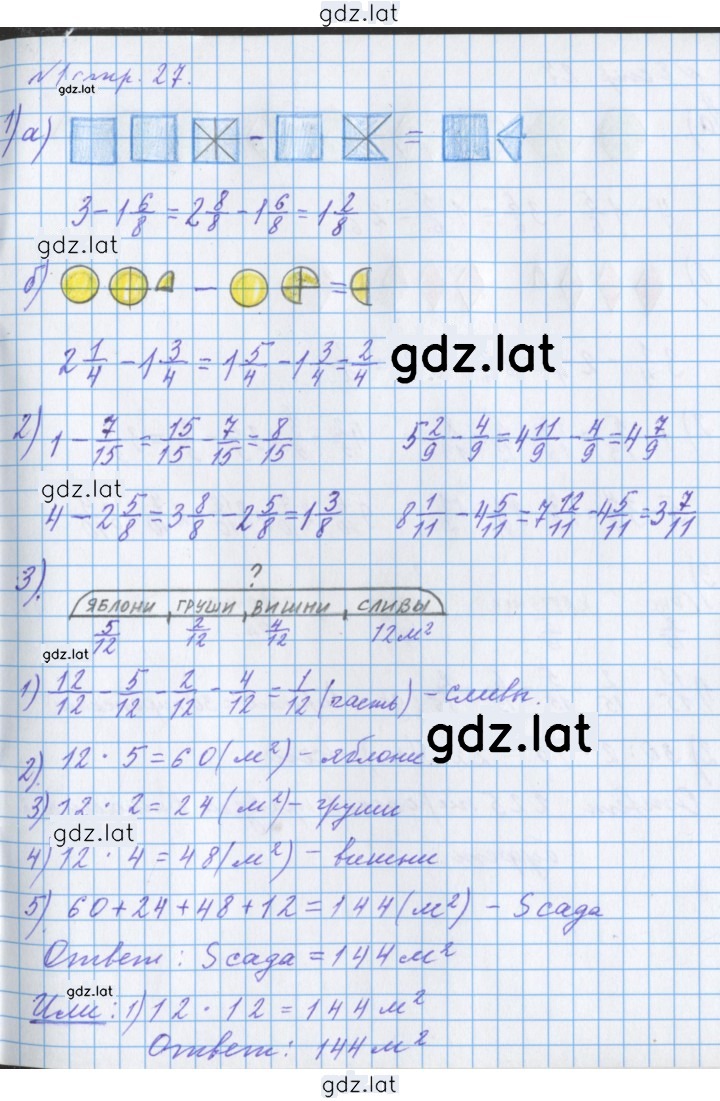 gdz.lat
№1 стр. 27.
gdz.lat
1) а) - =
3 - 1 6/8 = 2 8/8 - 1 6/8 = 1 2/8
gdz.lat
б) - =
2 1/4 - 1 3/4 = 1 5/4 - 1 3/4 = 2/4
gdz.lat
2) 1 - 7/15 = 15/15 - 7/15 = 8/15 5 2/9 - 4/9 = 4 11/9 - 4/9 = 4 7/9
gdz.lat
4 - 2 5/8 = 3 8/8 - 2 5/8 = 1 3/8 8 1/11 - 4 5/11 = 7 12/11 - 4 5/11 = 3 7/11
3). ?
ЯБЛОНИ ГРУШИ ВИШНИ СЛИВЫ
5/12 2/12 4/12 12 м²
gdz.lat
1) 12/12 - 5/12 - 2/12 - 4/12 = 1/12 (часть) - сливы.
gdz.lat
2) 12 · 5 = 60 (м²) - яблони
3) 12 · 2 = 24 (м²) - груши
gdz.lat
4) 12 · 4 = 48 (м²) - вишни
5) 60 + 24 + 48 + 12 = 144 (м²) - S сада
Ответ: S сада = 144 м²
gdz.lat
Или: 1) 12 · 12 = 144 м²
Ответ: 144 м²
gdz.lat